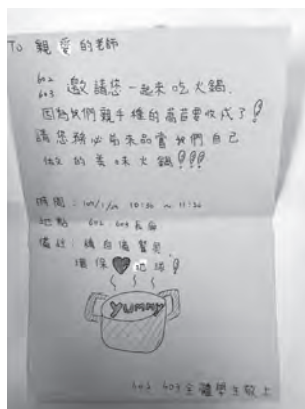 To 親愛的老師
602
603 邀請您一起來吃火鍋.
因為我們親手種的萵苣要收成了!
請您務必前來品嘗我們自己
做的美味火鍋!!!
時間: 10:30 ~ 11:20
地點 602 603 長廊
備註: 請自備餐具
環保♥地球!
YUMMY
602 603 全體學生敬上